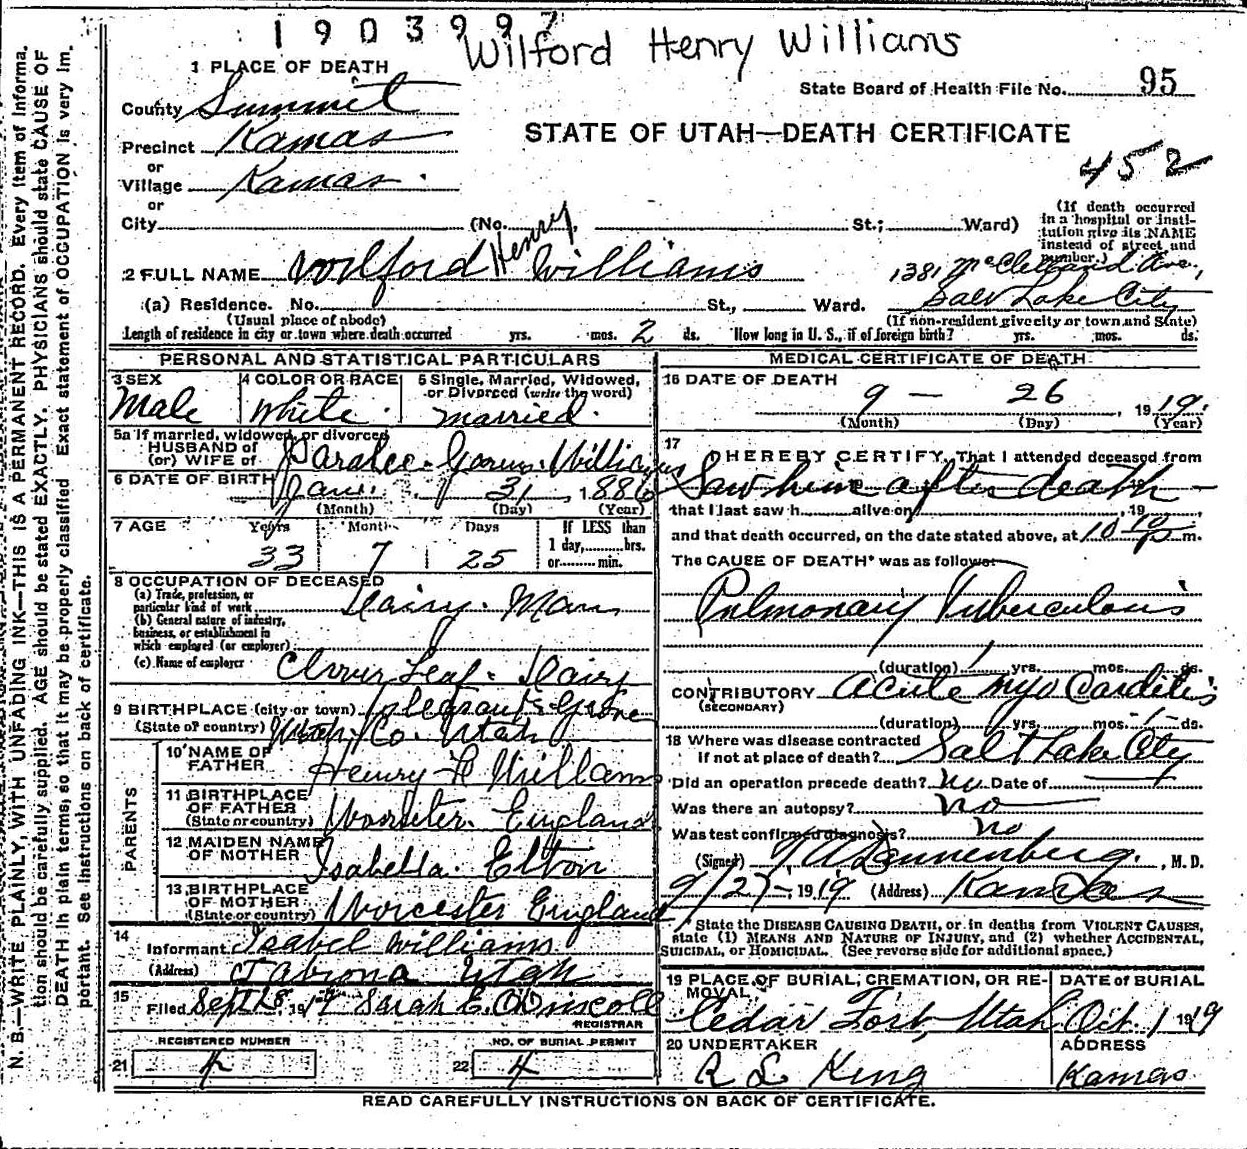 1903997
Wilford Henry Williams
1 PLACE OF DEATH
State Board of Health File No. 95
County Summit
STATE OF UTAH—DEATH CERTIFICATE
Precinct Kamas
452
or
Village Kamas
or
City (No. St.; Ward)
(If death occurred in a hospital or institution give its NAME instead of street and number.)
2 FULL NAME Wilford Henry Williams
1381 McClelland Ave.,
Salt Lake City
(a) Residence. No. St., Ward.
(Usual place of abode) (If non-resident give city or town and State)
Length of residence in city or town where death occurred yrs. mos. 2 ds. How long in U. S., if of foreign birth? yrs. mos. ds.
PERSONAL AND STATISTICAL PARTICULARS
3 SEX 4 COLOR OR RACE 5 Single, Married, Widowed, or Divorced (write the word)
Male White Married.
5a If married, widowed, or divorced
HUSBAND of
(or) WIFE of Paralee Williams
6 DATE OF BIRTH Jan. 31, 1886
(Month) (Day) (Year)
7 AGE Years Months Days If LESS than
1 day, hrs.
33 7 25 or min.
8 OCCUPATION OF DECEASED
(a) Trade, profession, or particular kind of work Dairy Man
(b) General nature of industry, business, or establishment in which employed (or employer)
(c) Name of employer Clover Leaf Dairy
9 BIRTHPLACE (city or town) Pleasant Grove
(State or country) Utah Co. Utah
PARENTS
10 NAME OF FATHER Henry H Williams
11 BIRTHPLACE OF FATHER (State or country) Worster England
12 MAIDEN NAME OF MOTHER Isabella Elton
13 BIRTHPLACE OF MOTHER (State or country) Worcester England
14
Informant Isabel Williams
(Address) Tabiona Utah
15 Filed Sept 28 1919 Sarah E. O'Driscoll
REGISTRAR
REGISTERED NUMBER NO. OF BURIAL PERMIT
21 4 22 4
MEDICAL CERTIFICATE OF DEATH
16 DATE OF DEATH
9 — 26, 1919.
(Month) (Day) (Year)
17
I HEREBY CERTIFY, That I attended deceased from
Saw him after death —
that I last saw h alive on , 19 ,
and that death occurred, on the date stated above, at 10 10 P m.
The CAUSE OF DEATH* was as follows:
Pulmonary Tuberculosis
(duration) 1 yrs. mos. ds.
CONTRIBUTORY Acute Myo Carditis
(SECONDARY)
(duration) yrs. mos. 1 ds.
18 Where was disease contracted
If not at place of death? Salt Lake City
Did an operation precede death? no Date of
Was there an autopsy? no
Was test confirmed diagnosis? no
(Signed) Dannenberg, M. D.
9/27-1919 (Address) Kamas
* State the DISEASE CAUSING DEATH, or in deaths from VIOLENT CAUSES,
state (1) MEANS AND NATURE OF INJURY, and (2) whether ACCIDENTAL,
SUICIDAL, or HOMICIDAL. (See reverse side for additional space.)
19 PLACE OF BURIAL, CREMATION, OR REMOVAL DATE OF BURIAL
Cedar Fort, Utah Oct 1 1919
20 UNDERTAKER ADDRESS
R L King Kamas
READ CAREFULLY INSTRUCTIONS ON BACK OF CERTIFICATE.
N. B.—WRITE PLAINLY, WITH UNFADING INK—THIS IS A PERMANENT RECORD. Every item of informa-
tion should be carefully supplied. AGE should be stated EXACTLY. PHYSICIANS should state CAUSE OF
DEATH in plain terms, so that it may be properly classified. Exact statement of OCCUPATION is very im-
portant. See instructions on back of certificate.